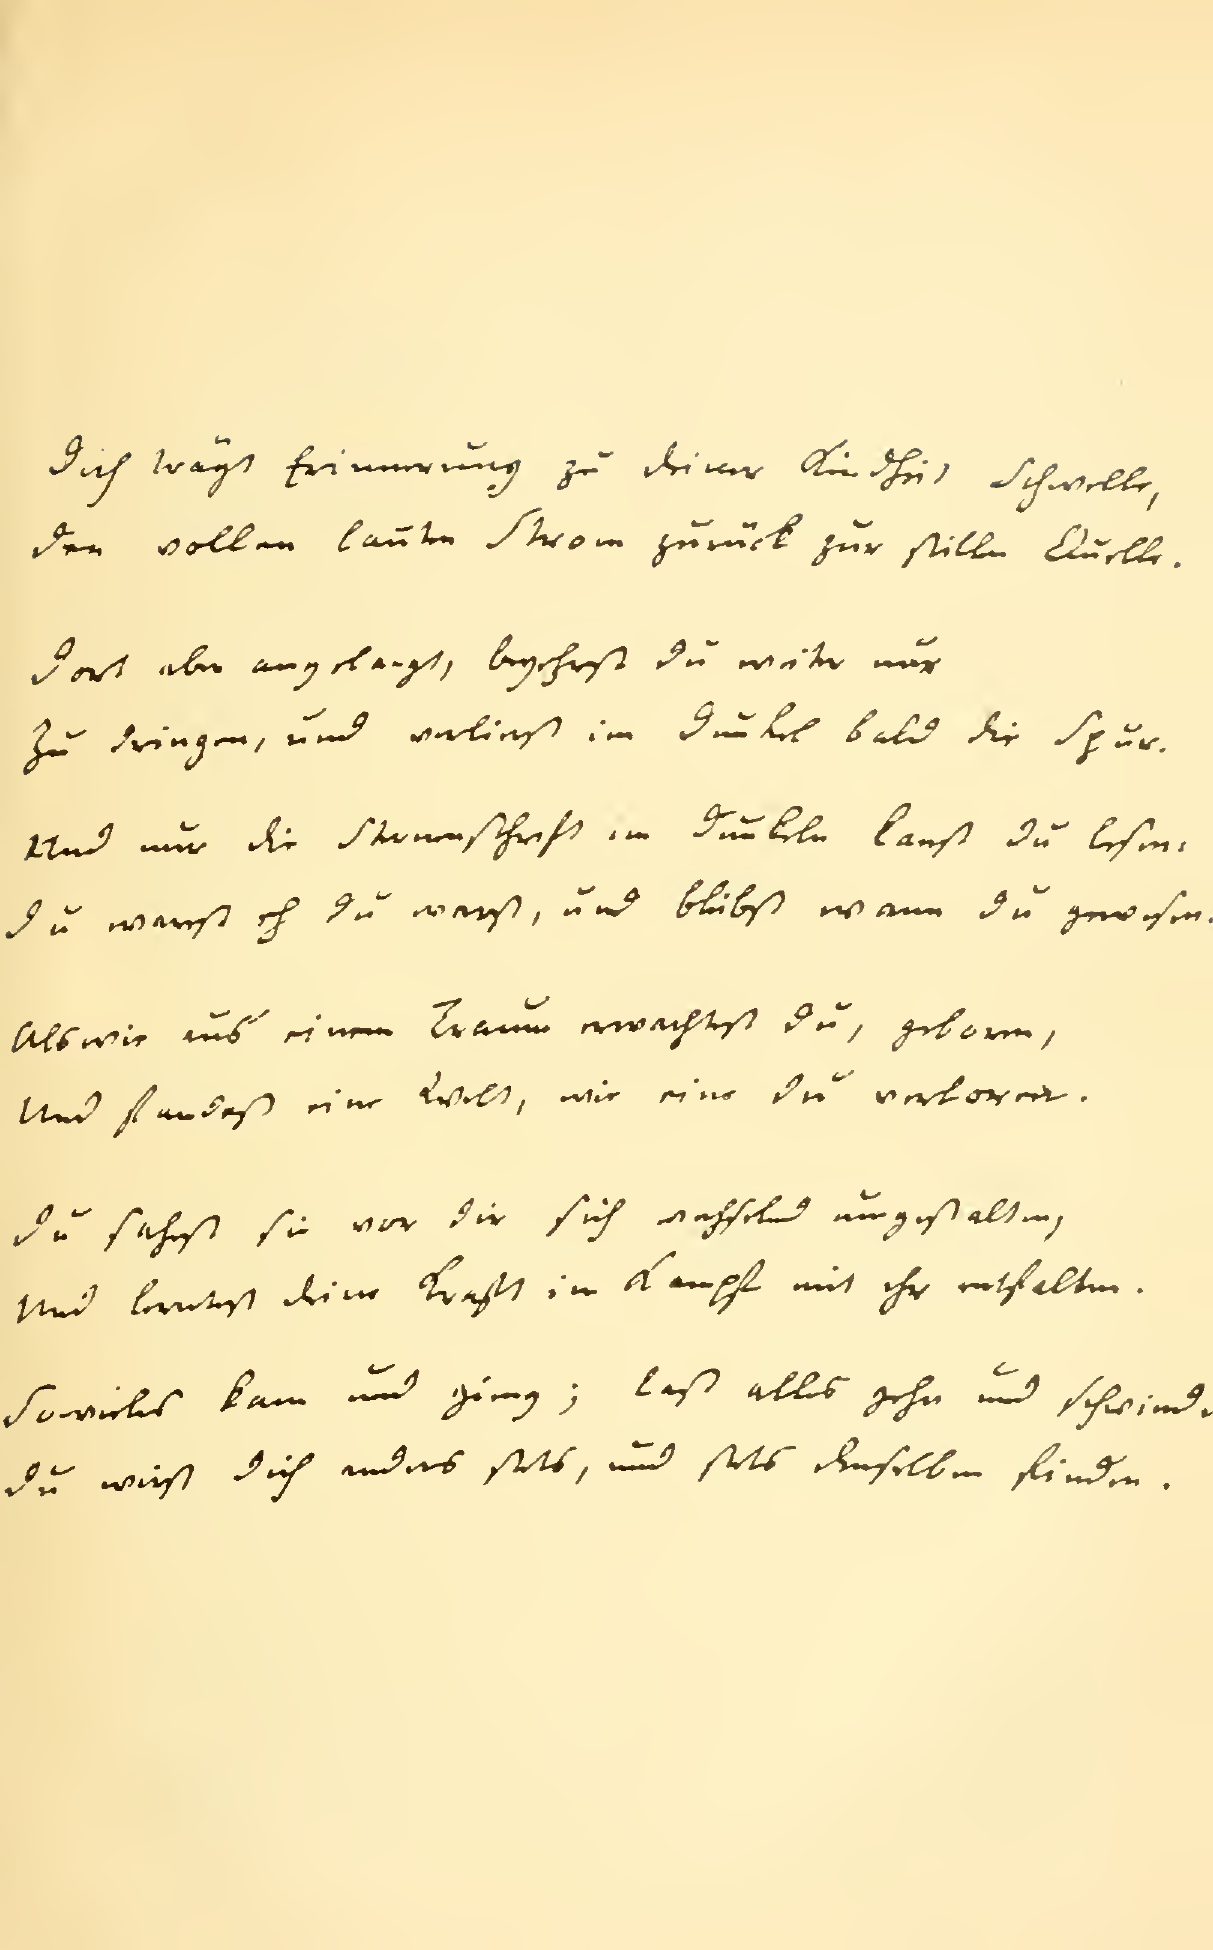 Dich trägt Erinnerung zu deiner Kindheit Schwelle,
Den vollen lauten Strom zurück zur stillen Quelle.
Dort aber angelangt, begehrst du weiter nur
Zu dringen, und verlierst im Dunkel bald die Spur.
Und nur die Sternenschrift im Dunkeln kanst du lesen:
Du warest eh du warst, und bleibst wann du gewesen.
Alswie aus einem Traum erwachtest du, geboren,
Und fandest eine Welt, wie eine du verloren.
Du sahest sie vor dir sich wechselnd umgestalten,
Und lerntest deine Kraft im Kampf mit ihr entfalten.
Sovieles kam und gieng; laß alles gehn und schwinden
Du wirst dich anders stets, und stets denselben finden.